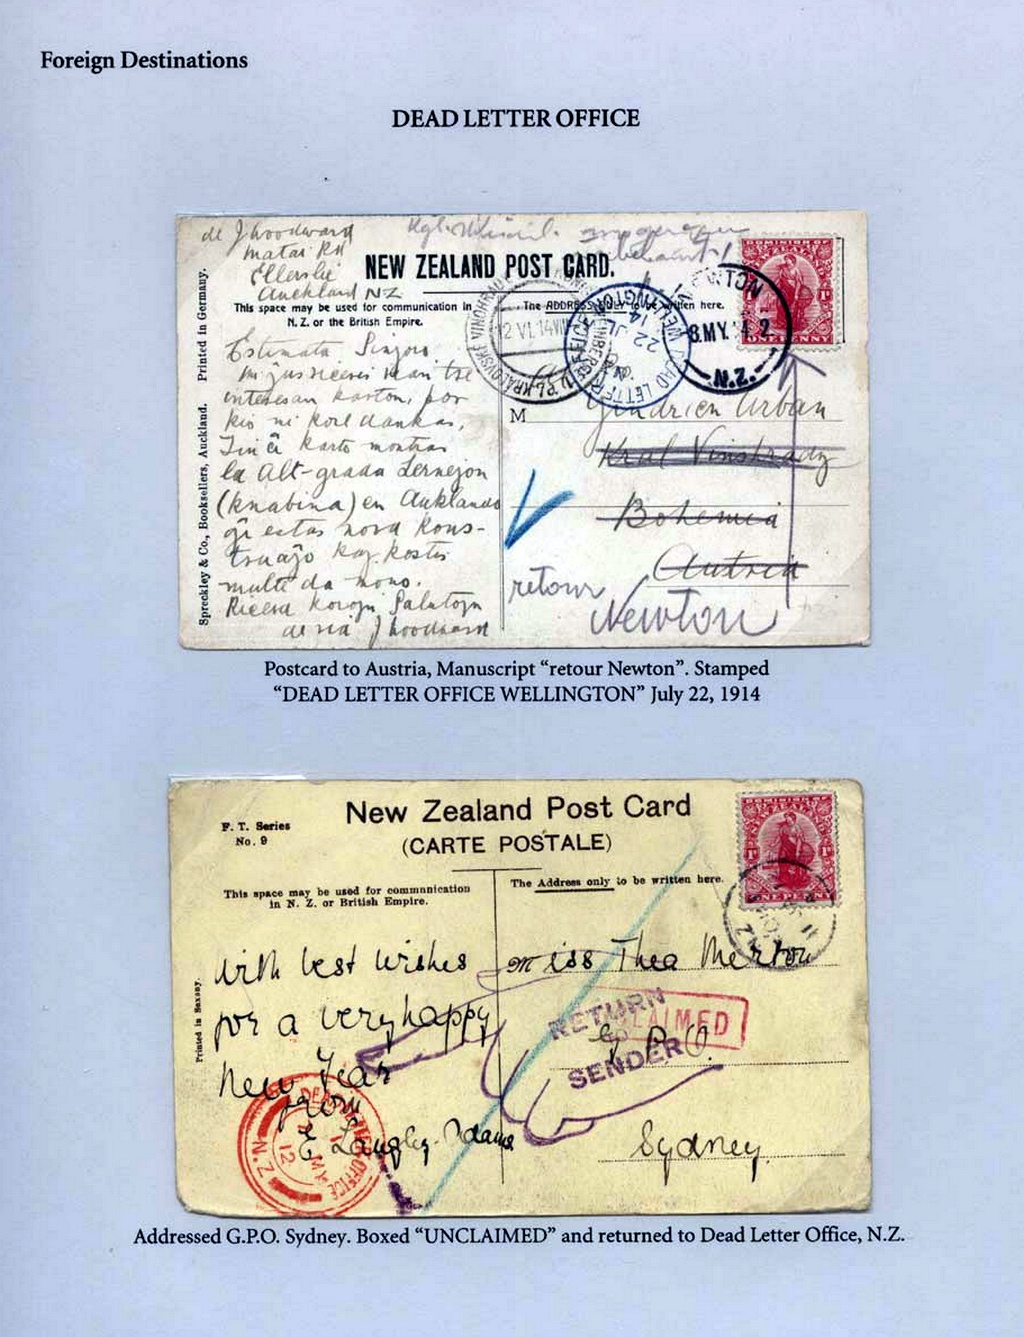 Foreign Destinations
DEAD LETTER OFFICE
de J Woodward
Matai Rd
Ellerslie
Auckland NZ
NEW ZEALAND POST CARD.
This space may be used for communication in
N. Z. or the British Empire.
The ADDRESS ONLY to be written here.
Printed in Germany.
Spreckley & Co., Booksellers, Auckland.
DOMINION OF
NEW ZEALAND
ONE PENNY
NEWTON
8.MY.14.2
N.Z.
DEAD LETTER OFFICE WELLINGTON
22 JL 14
N.Z.
KRÁLOVSKÉ VINOHRADY
12 VI. 14 VIII
Estimata Sinjoro
Mi jus ricevis vian tre
interesan karton, por
kio mi kore dankas,
Tiu ĉi karto montras
la Alt-grada Lernejon
(knabina) en Auklando
ĝi estas nova kons-
truaĵo kaj kostis
multe da mono.
Ricevu korajn Salutojn
de via J Woodward
M Jindrich Urban
Kral Vinohrady
Bohemia
Austria
retour
Newton
Postcard to Austria, Manuscript “retour Newton”. Stamped
“DEAD LETTER OFFICE WELLINGTON” July 22, 1914
New Zealand Post Card
(CARTE POSTALE)
F. T. Series
No. 9
This space may be used for communication
in N. Z. or British Empire.
The Address only to be written here.
Printed in Saxony.
ONE PENNY
with best wishes
for a very happy
New Year
from
E Langley-Adams
Miss Thea Merton
G. P. O.
Sydney.
UNCLAIMED
RETURN
TO
SENDER
DEAD LETTER OFFICE
N.Z.
MR
12
Addressed G.P.O. Sydney. Boxed “UNCLAIMED” and returned to Dead Letter Office, N.Z.